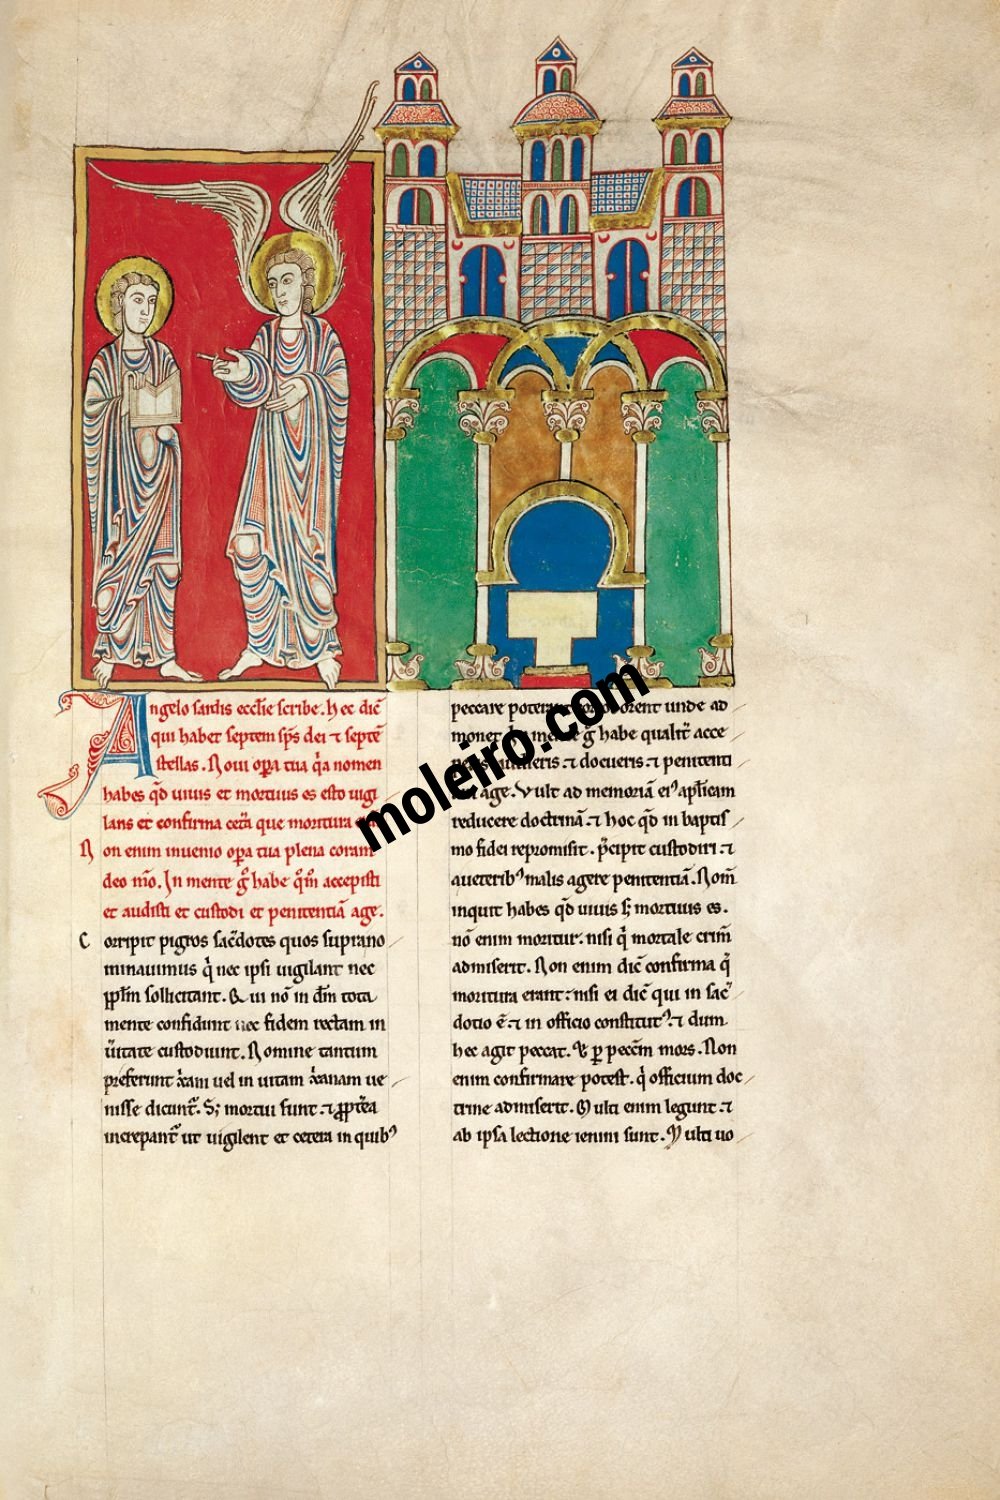 Angelo sardis eccl̄ie scribe. hec dic̄
qui habet septem sp̄s dei ⁊ septē
stellas. Noui op̄a tua q̄a nomen
habes qd̄ uiuus et mortuus es esto uigi
lans et confirma cet̄a que moritura
Non enim inuenio op̄a tua plena coram
deo mō. In mente g̊ habe q̄m̄ accepisti
et audisti et custodi et penitentiā age.
Corripit pigros sac̄dotes quos suprano
minauimus q̄ nec ipsi uigilant nec
pp̄lm sollicitant. Qui nō in dn̄m tota
mente confidunt nec fidem rectam in
ūitate custodiunt. Nomine tantum
preferunt xānm uel in uitam xānam ue
nisse dicunt᷑. S; mortui sunt. ⁊ ꝓpt̄ea
increpant᷑ ut uigilent et cetera in quibꝰ
peccare poterant unde ad
monet g̊ habe qualit᷑ acce
⁊ docueris. ⁊ penitenti
am age. Vult ad memoriā eiꝰ aplīcam
reducere doctrinā. ⁊ hoc qd̄ in baptis
mo fidei repromisit. p̄cipit custodiri. ⁊
aueteribꝰ malis agere penitentiā. Nom̄
inquit habes qd̄ uiuis s; mortuus es.
nō enim moritur. nisi q̄ mortale crim̄
admiserit. Non enim dic̄ confirma q̄
moritura erant. nisi ei dic̄ qui in sac̄
dotio ē. ⁊ in officio constitutꝰ. ⁊ dum
hec agit peccat. Et p̱ pecc̄m mors. Non
enim confirmare potest. q̄ officium doc
trine admiserit. Multi enim legunt. ⁊
ab ipsa lectione ieiuni sunt. Multi uo
moleiro.com